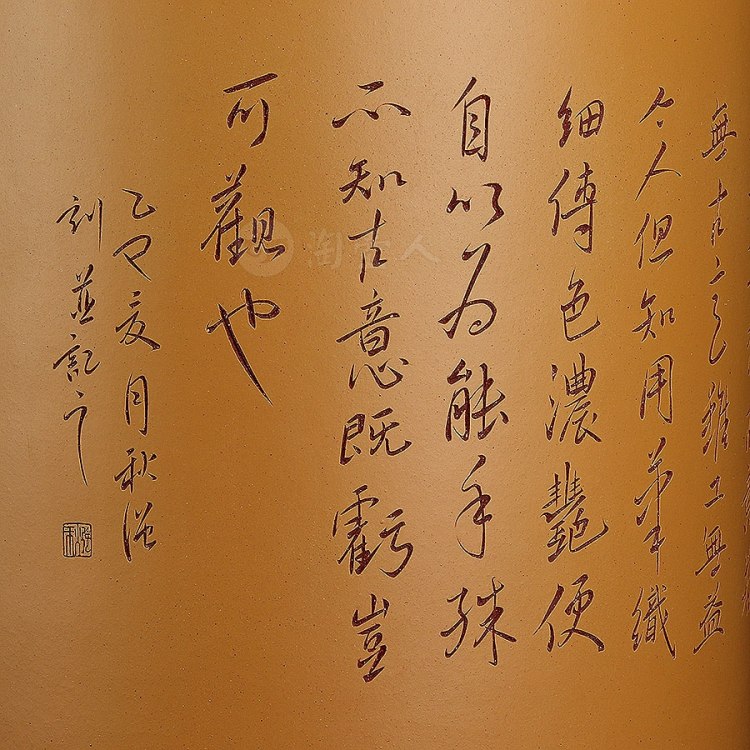 無古意雖工無益
今人但知用筆纖
細傅色濃艷便
自以為能手殊
不知古意既虧豈
可觀也
乙巳夏月秋
刻並記之